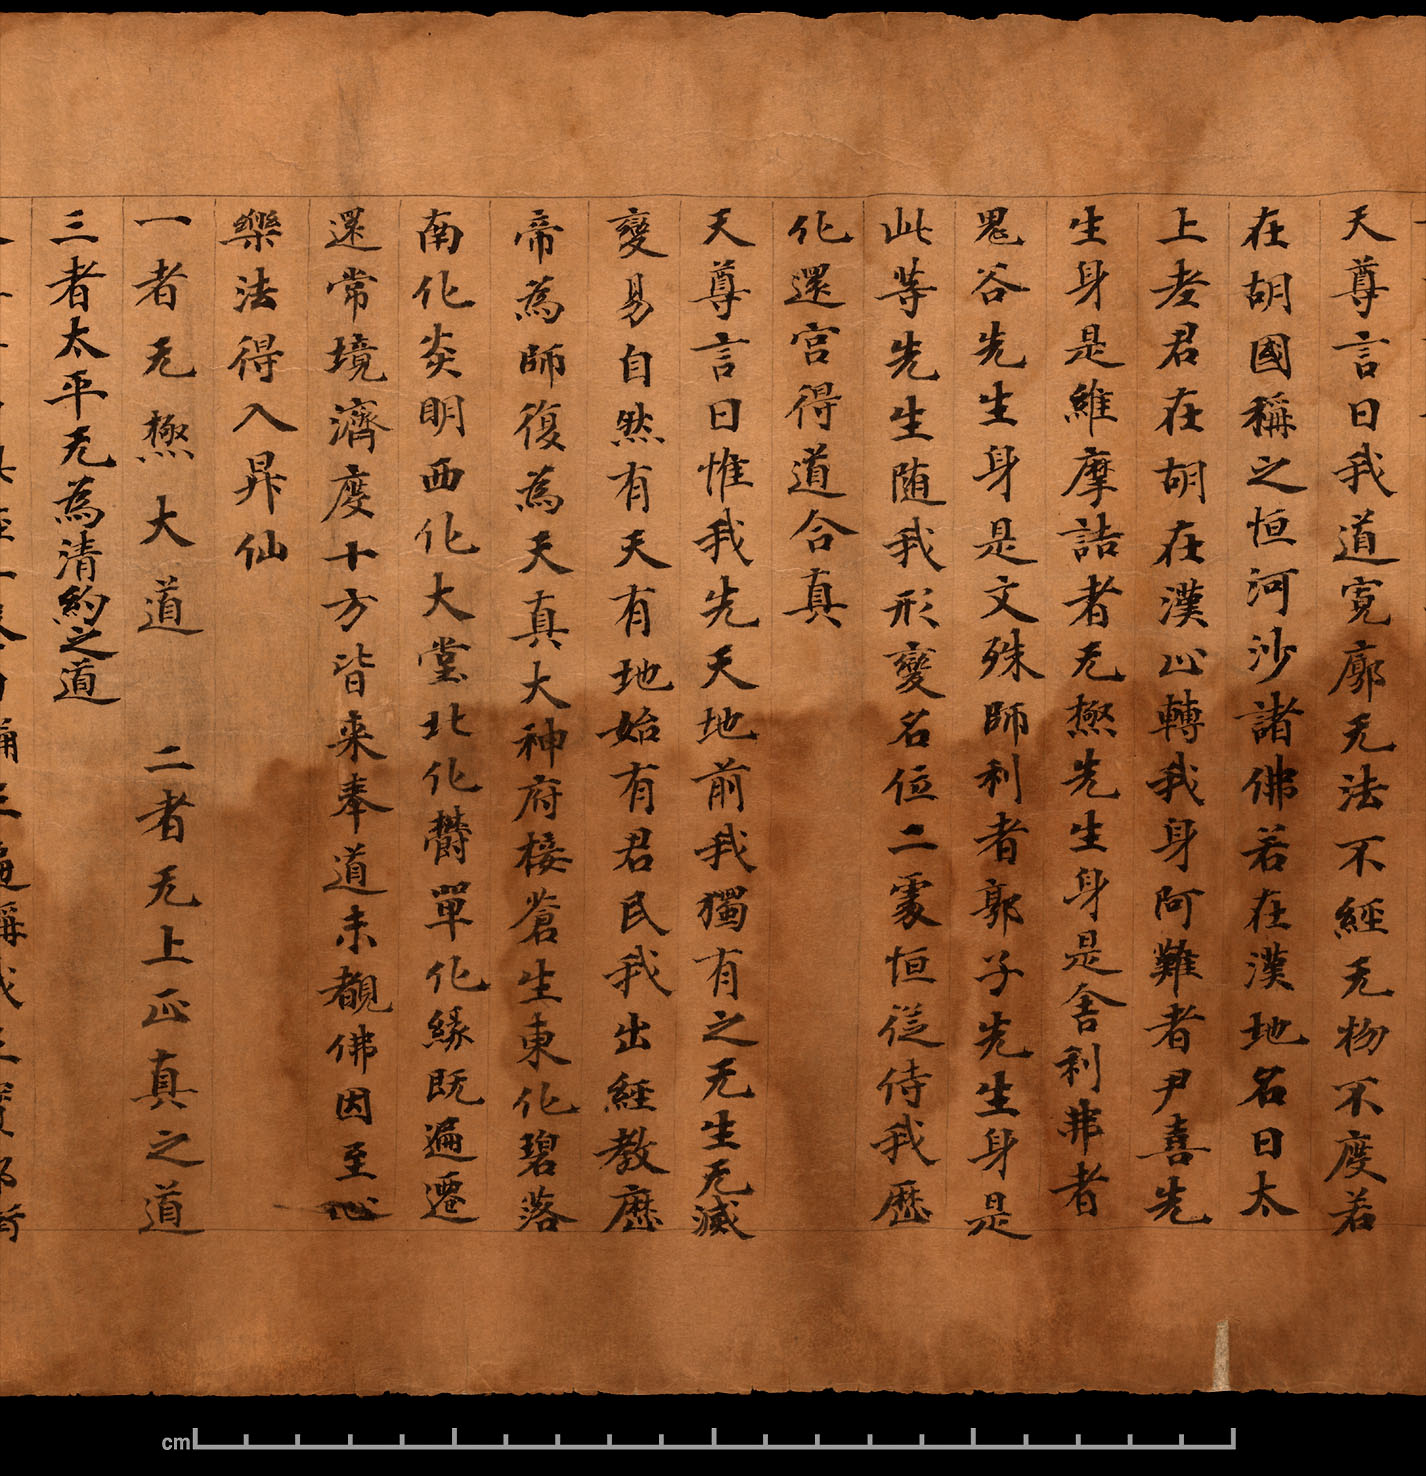 天尊言曰我道寛廓无法不經无物不度若
在胡國稱之恒河沙諸佛若在漢地名曰太
上老君在胡在漢心轉我身阿難者尹喜先
生身是維摩詰者无極先生身是舍利弗者
鬼谷先生身是文殊師利者郭子先生身是
此等先生随我形變名位二處恒從侍我歷
化還宮得道合真
天尊言曰惟我先天地前我獨有之无生无滅
變易自然有天有地始有君民我出經教歷
帝為師復為天真大神府接蒼生東化碧落
南化炎明西化大堂北化欝單化緣既遍遷
還常境濟度十方皆来奉道未覩佛因至心
樂法得入昇仙
一者无極大道 二者无上正真之道
三者太平无為清約之道